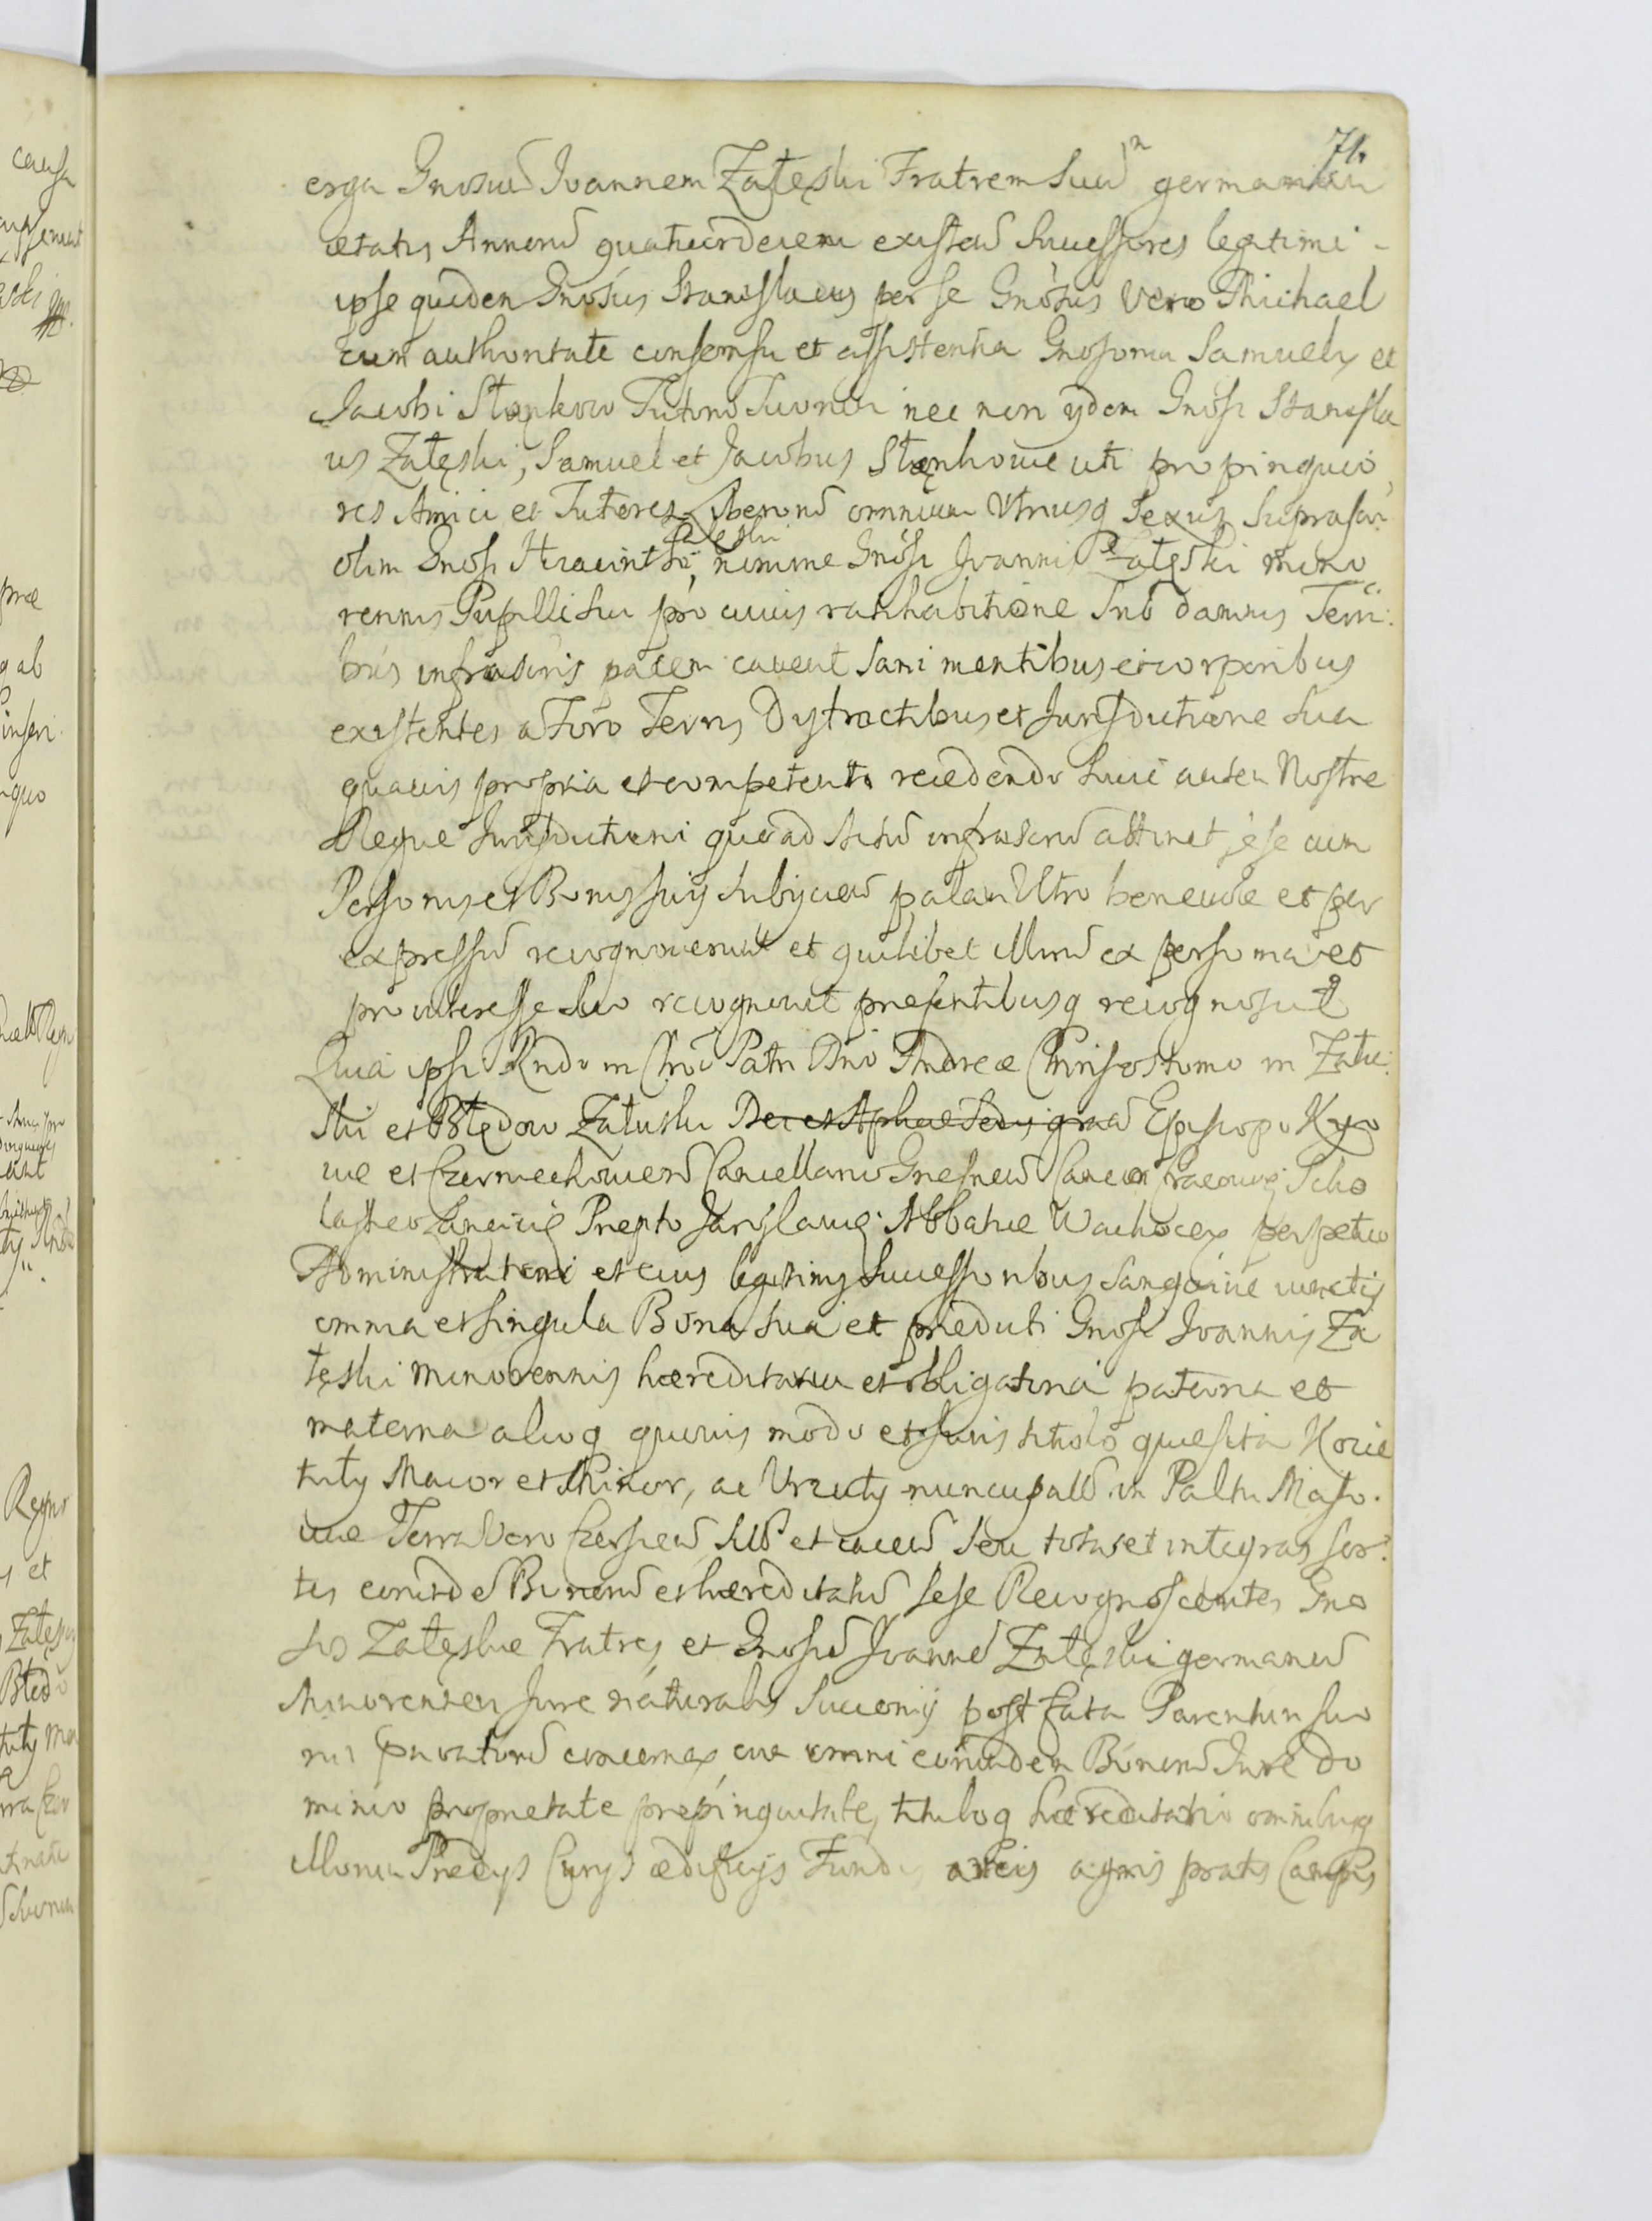 71.
erga Gnosum Joannem Załęski Fratrem Suum germanum
ætatis Annorum quatuordecem existen Successores legitimi
ipse quidem Gnosus Stanislaus per se Gnosus Vero Michael
cum authoritate consensu et assistentia Gnosorum Samuelis et
Jacobi Stępkow Tutorum Suorum nec non ijdem Gnosi Stanisla
us Załęski, Samuel et Jacobus Stępkowie uti propinquio
res Amici et Tutores Liberorum omnium Utriusq Sexus Suprascri
olim Gnosi Hiacinthi Załęski, nomine Gnosi Joannis Załęski mino
rennis Pupilli sui pro cuius ratihabitione Sub damnis Terri:
bus infrascris pacem cavent Sani mentibus et corporibus
existentes a Foro Terris Districtibus et Jurisdictione Sua
quavis propria et competenti recedendo huic autem Nostræ
Regue Jurisdictioni quoad Actum infrascrum attinet, sese cum
Personis et Bonis suis subijcien palam Ultro benevole et per
expressum recognoverunt et quilibet illorum ex persona et
pro interesse suo recognovit presentibusq recognoscit
Quia ipsi Rndo in Chro Patri Dno Andreæ Chrisostomo in Zału:
ski et Błędow Załuski Dei et Aplicæ Sedis gratia Episcopo Kyo
viæ et Czerniechovien Cancellario Gnesnen Canco Cracovię Scho
lastico Lancicię Prepto Jaroslavię Abbatiæ Wachocen perpetuo
Administratori et eius legitimis Successoribus Sanguine iunctis
omnia et singula Bona sua et prædicti Gnosi Joannis Za
łęski minorennis hæreditaria et obligatoria paterna et
materna alioq quovis modo et iuris titulo quæsita Kocie
tuły Maior et Minor, ac Wrzuty nuncupatt in Palttu Maso.
viæ Terra Vero Czersien sitt et iacen seu totas et integras sor:
tes eorundem Bonorum et hæreditatum sese Recognoscentes Gno
sos Załęskie Fratres et Gnosum Joannem Załęski germanum
Minorennem Jure naturalis Succonis post fata Parentum suo
rum privatorum concernen cum omni eorundem Bonorum Jure do
minio proprietate propinquitate, tituloq hæreditario omnibusq
illorum Prædys Curys ædificys Fundis areis agris pratis Campis